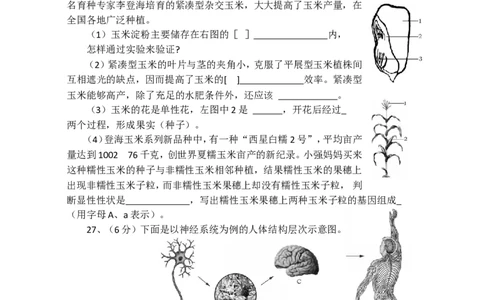 名育种专家李登海培育的紧凑型杂交玉米，大大提高了玉米产量，在
全国各地广泛种植。
（1）玉米淀粉主要储存在右图的［ ］______________内，
怎样通过实验来验证?
（2）紧凑型玉米的叶片与茎的夹角小，克服了平展型玉米植株间
互相遮光的缺点，因而提高了玉米的[ ]____________效率。紧凑型
玉米能够高产，除了充足的水肥条件外，还应该 ____________。
（3）玉米的花是单性花，左图中2是 ______，开花后经过_
两个过程，形成果实（种子）。
（4）登海玉米系列新品种中，有一种“西星白糯2号”，平均亩产
量达到1002 76千克，创世界夏糯玉米亩产的新纪录。小强妈妈买来
这种糯性玉米的种子与非糯性玉米相邻种植，结果糯性玉米的果穗上
出现非糯性玉米子粒，而非糯性玉米果穗上却没有糯性玉米子粒， 判
断显性性状是____________，写出糯性玉米果穗上两种玉米子粒的基因组成_
（用字母A、a表示）。
27、（6分）下面是以神经系统为例的人体结构层次示意图。
1
2
3
1
2
C